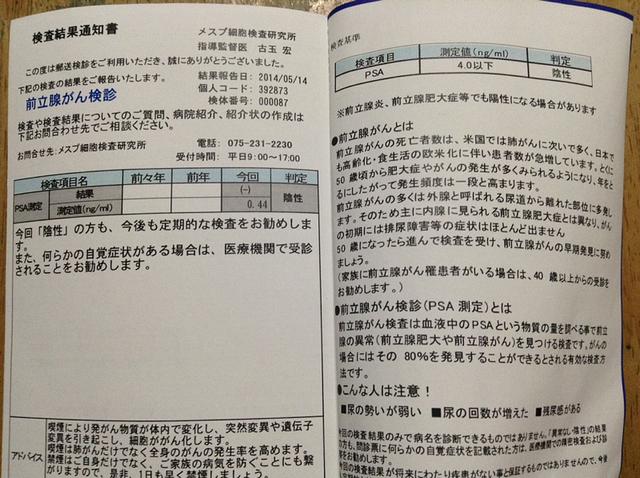 検査結果通知書
メスプ細胞検査研究所
指導監督医　古玉 宏
この度は郵送検診をご利用いただき、誠にありがとうございました。
下記の検査の結果をご報告いたします。
結果報告日：2014/05/14
個人コード：392873
検体番号：000087
前立腺がん検診
検査や検査結果についてのご質問、病院紹介、紹介状の作成は
下記お問合わせ先でご相談ください。
お問合せ先：メスプ細胞検査研究所
電話：075-231-2230
受付時間：平日9:00～17:00
検査項目名　前々年　前年　今回　判定
PSA測定　結果　(-)　陰性
測定値(ng/ml)　0.44
今回「陰性」の方も、今後も定期的な検査をお勧めしま
す。
また、何らかの自覚症状がある場合は、医療機関で受診
されることをお勧めします。
アドバイス
喫煙により発がん物質が体内で変化し、突然変異や遺伝子
変異を引き起こし、細胞ががん化します。
喫煙は肺がんだけでなく全身のがんの発生率を高めます。
禁煙はご自身だけでなく、ご家族の病気を防ぐことにも繋
がりますので、是非、1日も早く禁煙しましょう。
検査基準
検査項目　測定値(ng/ml)　判定
PSA　4.0以下　陰性
※前立腺炎、前立腺肥大症等でも陽性になる場合があります
●前立腺がんとは
前立腺がんの死亡者数は、米国では肺がんに次いで多く、日本で
も高齢化・食生活の欧米化に伴い患者数が急増しています。とくに
50歳頃から肥大症やがんの発生が多くみられるようになり、年をと
るにしたがって発生頻度は一段と高まります。
前立腺がんの多くは外腺と呼ばれる尿道から離れた部位に多発し
ます。そのため主に内腺に見られる前立腺肥大症とは異なり、がん
の初期には排尿障害等の症状はほとんど出ません
50歳になったら進んで検査を受け、前立腺がんの早期発見に努め
ましょう。
(家族に前立腺がん罹患者がいる場合は、40歳以上からの受診を
お勧めします。)
●前立腺がん検診(PSA測定)とは
前立腺がん検査は血液中のPSAという物質の量を調べる事で前立
腺の異常(前立腺肥大や前立腺がん)を見つける検査です。がんの
場合にはその80%を発見することができるとされる有効な検査方
法です。
●こんな人は注意！
■尿の勢いが弱い　■尿の回数が増えた　■残尿感がある
今回の検査結果のみで病名を診断できるものではありません。「異常ない・陰性」の結果
の方も、問診票に何らかの自覚症状を記載された方は、医療機関での精密検査および診